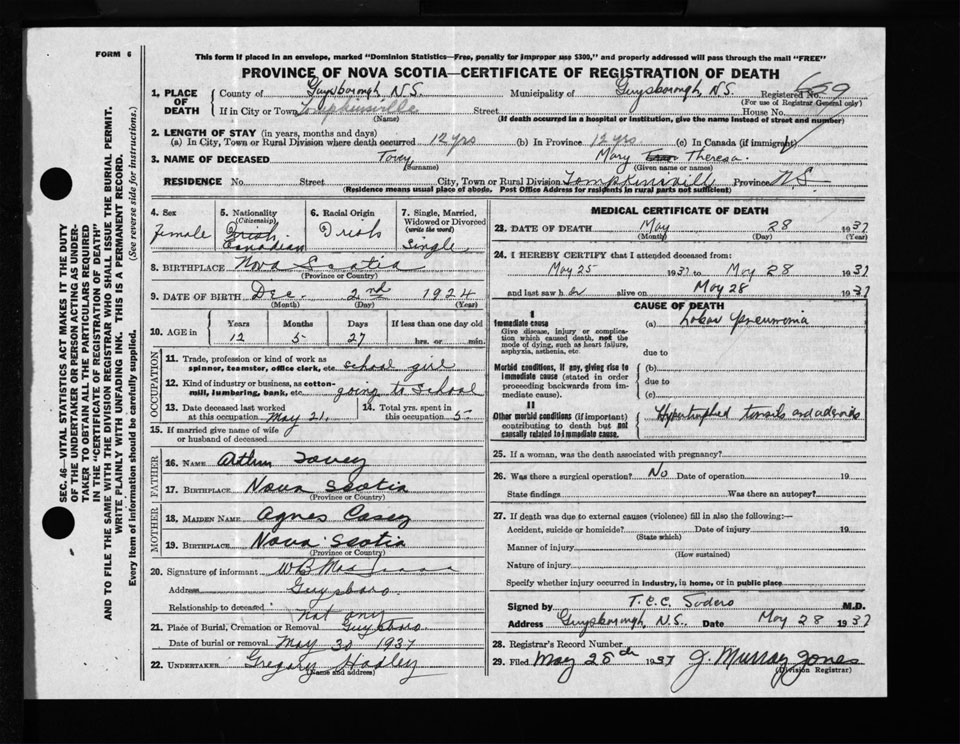 FORM 6
This form if placed in an envelope, marked "Dominion Statistics—Free, penalty for improper use $300," and properly addressed will pass through the mail "FREE"
PROVINCE OF NOVA SCOTIA—CERTIFICATE OF REGISTRATION OF DEATH
1. PLACE OF DEATH County of Guysborough, N.S. Municipality of Guysborough, N.S. Registered No.
(For use of Registrar General only)
If in City or Town Tompkinsville Street House No.
(Name) (If death occurred in a hospital or institution, give the name instead of street and number)
2. LENGTH OF STAY (in years, months and days)
(a) In City, Town or Rural Division where death occurred 12 yrs (b) In Province 12 yrs (c) In Canada (if immigrant)
3. NAME OF DECEASED Tovey Mary Theresa.
(Surname) (Given name or names)
RESIDENCE No. Street City, Town or Rural Division Tompkinsvill Province N.S.
(Residence means usual place of abode. Post Office Address for residents in rural parts not sufficient)
4. Sex 5. Nationality (Citizenship) 6. Racial Origin 7. Single, Married, Widowed or Divorced (write the word)
Female Irish Canadian Irish Single
8. BIRTHPLACE Nova Scotia
(Province or Country)
9. DATE OF BIRTH Dec. 2nd 1924
(Month) (Day) (Year)
10. AGE in Years Months Days If less than one day old
12 5 27 hrs. or min.
OCCUPATION
11. Trade, profession or kind of work as spinner, teamster, office clerk, etc. school girl
12. Kind of industry or business, as cotton-mill, lumbering, bank, etc. going to School
13. Date deceased last worked at this occupation May 21, 14. Total yrs. spent in this occupation 5
15. If married give name of wife or husband of deceased
FATHER
16. NAME Arthur Tovey
17. BIRTHPLACE Nova Scotia
(Province or Country)
MOTHER
18. MAIDEN NAME Agnes Casey
19. BIRTHPLACE Nova Scotia
(Province or Country)
20. Signature of informant W B
Address Guysboro.
Relationship to deceased not any
21. Place of Burial, Cremation or Removal Guysboro
Date of burial or removal May 30 1937
22. UNDERTAKER Gregory Hadley
(Name and address)
MEDICAL CERTIFICATE OF DEATH
23. DATE OF DEATH May 28 1937
(Month) (Day) (Year)
24. I HEREBY CERTIFY that I attended deceased from:
May 25 1937 to May 28 1937
and last saw h er alive on May 28 1937
CAUSE OF DEATH
I
Immediate cause (a) Lobar pneumonia
Give disease, injury or complication which caused death, not the mode of dying, such as heart failure, asphyxia, asthenia, etc.
due to
Morbid conditions, if any, giving rise to immediate cause (stated in order proceeding backwards from immediate cause). (b)
due to
(c)
II
Other morbid conditions (if important) contributing to death but not causally related to immediate cause. Hypertrophied tonsils and adenoids
25. If a woman, was the death associated with pregnancy?
26. Was there a surgical operation? No Date of operation 19
State findings Was there an autopsy?
27. If death was due to external causes (violence) fill in also the following:—
Accident, suicide or homicide? Date of injury 19
(State which)
Manner of injury
(How sustained)
Nature of injury
Specify whether injury occurred in industry, in home, or in public place
Signed by T.C.C. Sodero M.D.
Address Guysborough, N.S. Date May 28 1937
28. Registrar's Record Number
29. Filed May 28th 1937 J. Murray Jones
(Division Registrar)
SEC. 46—VITAL STATISTICS ACT MAKES IT THE DUTY
OF THE UNDERTAKER OR PERSON ACTING AS UNDER-
TAKER TO OBTAIN ALL THE PARTICULARS REQUIRED
IN THE "CERTIFICATE OF REGISTRATION OF DEATH"
AND TO FILE THE SAME WITH THE DIVISION REGISTRAR WHO SHALL ISSUE THE BURIAL PERMIT.
WRITE PLAINLY WITH UNFADING INK. THIS IS A PERMANENT RECORD.
Every item of information should be carefully supplied. (See reverse side for instructions.)